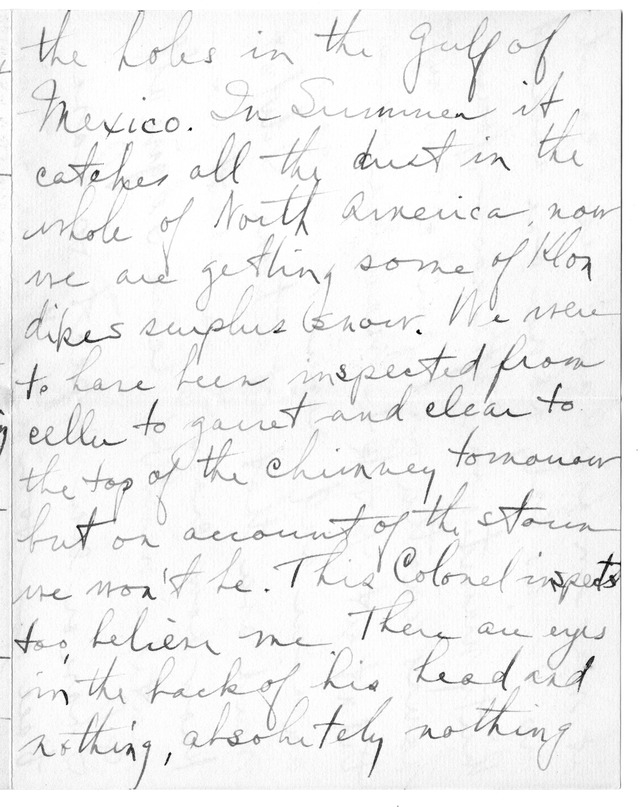 the holes in the Gulf of
Mexico. In Summer it
catches all the dust in the
whole of North America, now
we are getting some of Klon
dikes surplus snow. We were
to have been inspected from
celler to garret and clear to
the top of the chimney tomorrow
but on account of the storm
we won't be. This Colonel inspects
too, believe me. There are eyes
in the back of his head and
nothing, absolutely nothing